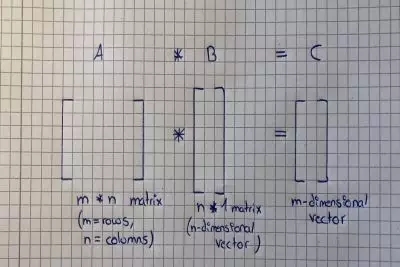 A * B = C
* =
m * n matrix
(m=rows,
n = columns)
n * 1 matrix
(n-dimensional
vector)
m-dimensional
vector